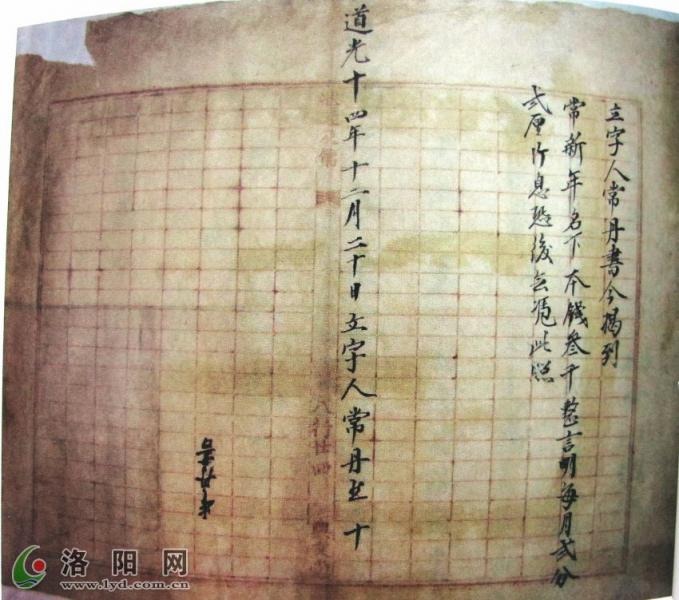 立字人常丹書今揭到
常新年名下本錢叁千整言明每月貳分
貳厘行息恐後無憑此照
道光十四年十二月二十日立字人常丹書十
洛阳网
www.lyd.com.cn